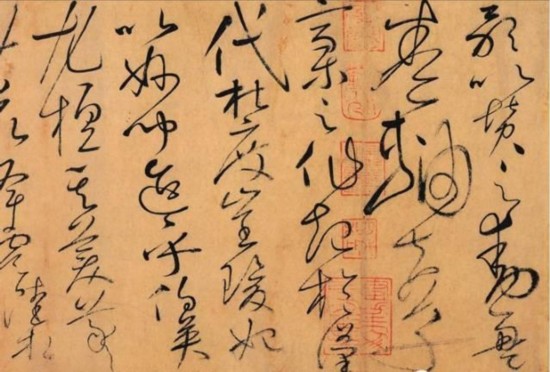 歌以贊之動盈
卷軸夫草
稿之作起於漢
代杜度崔瑗始
以妙聞迨乎伯英
尤擅其美羲獻
茲降虞陸相